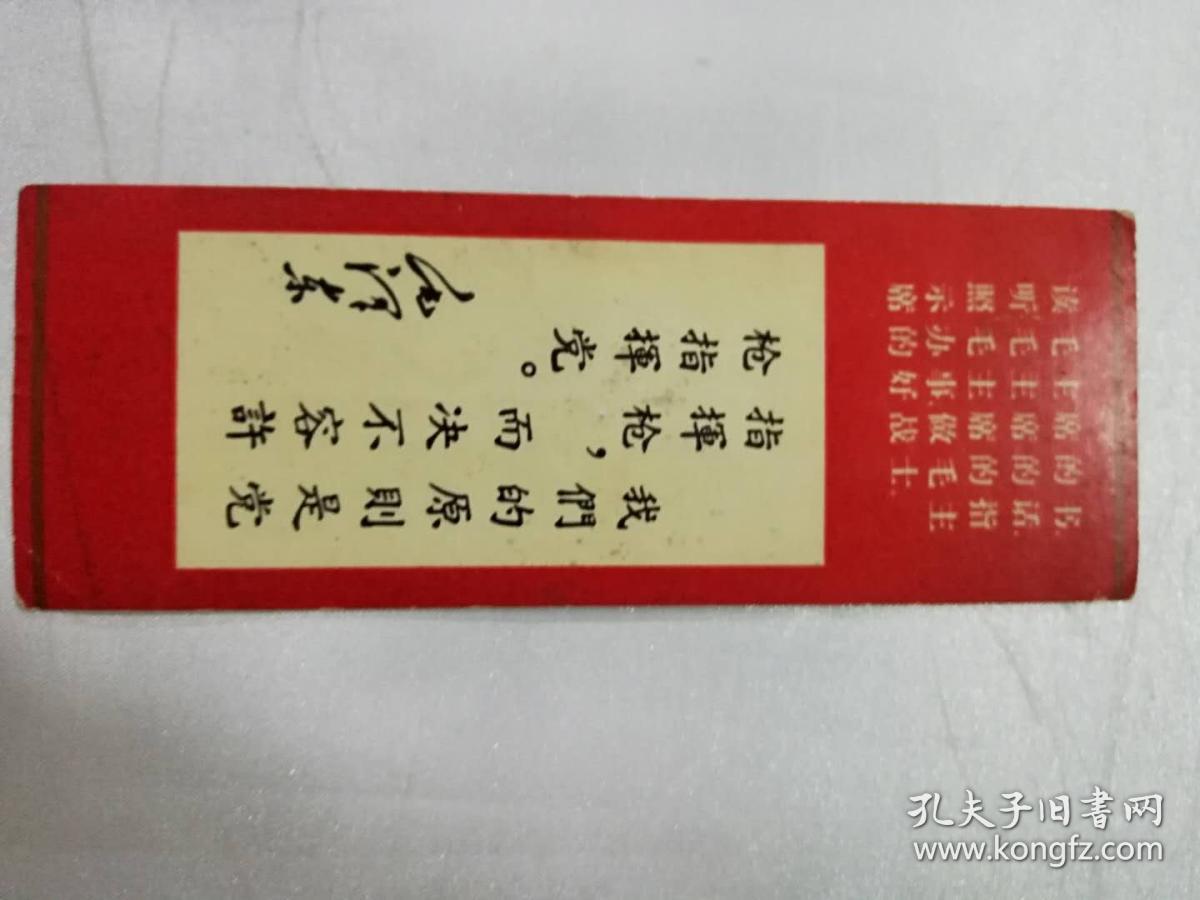 读毛主席的书,
听毛主席的话,
照毛主席的指
示办事做毛主
席的好战士.
我們的原則是党
指揮枪,而决不容許
枪指揮党。
毛泽东
孔夫子旧書网
www.kongfz.com